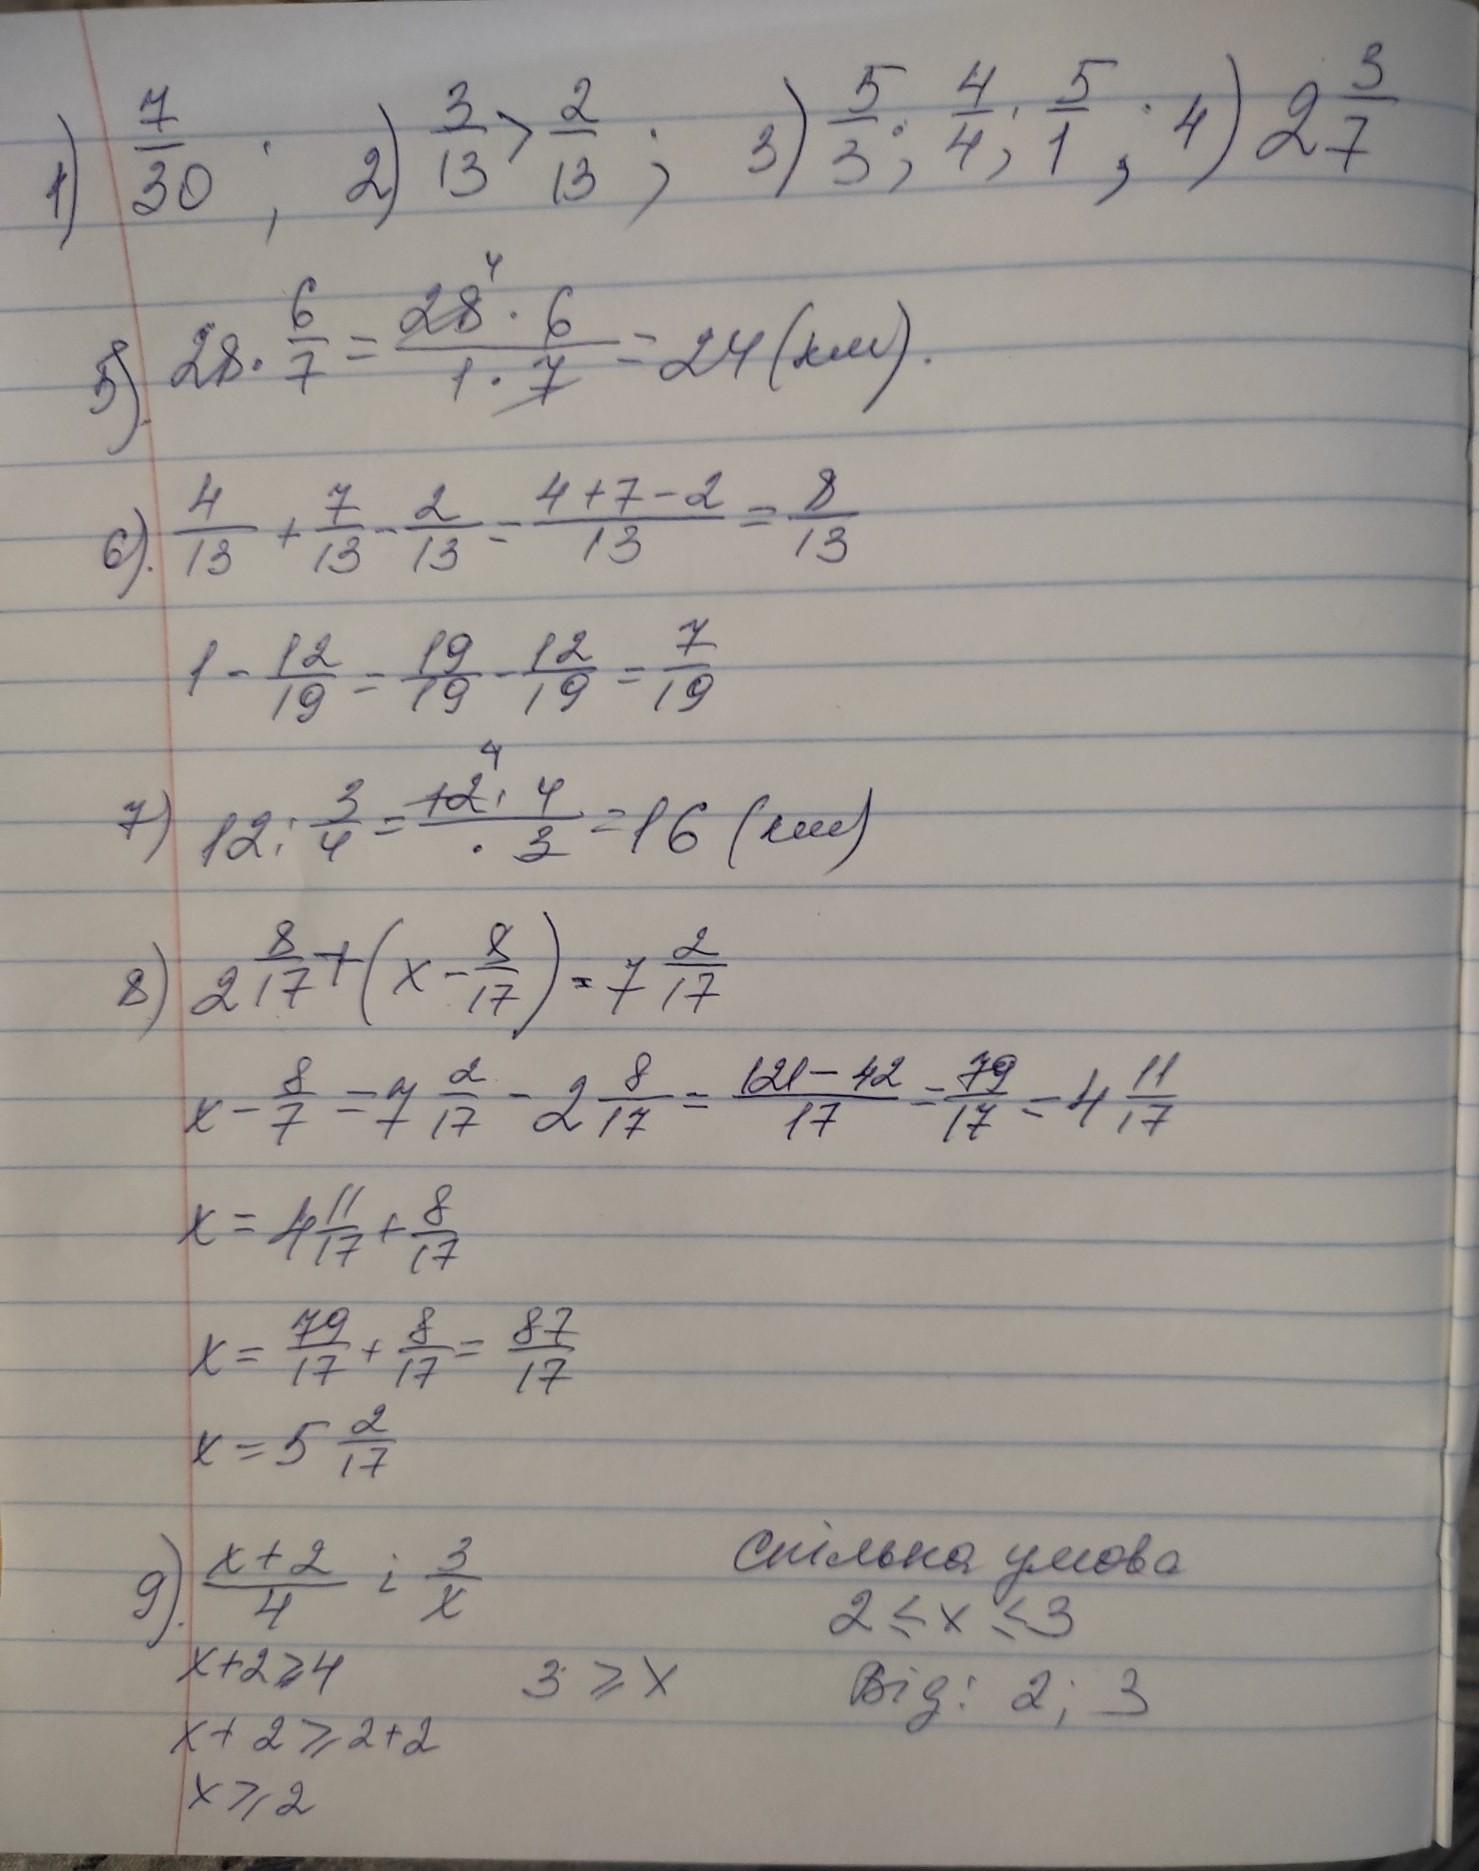 1) 7/30 ; 2) 3/13 > 2/13 ; 3) 5/3 ; 4/4 ; 5/1 ; 4) 2 3/7
5). 28 · 6/7 = (28 · 6)/(1 · 7) = 24 (км).
4
6). 4/13 + 7/13 - 2/13 = (4+7-2)/13 = 8/13
1 - 12/19 = 19/19 - 12/19 = 7/19
4
7) 12 : 3/4 = (12 · 4)/(· 3) = 16 (км)
8) 2 8/17 + (x - 8/17) = 7 2/17
x - 8/7 = 7 2/17 - 2 8/17 = (121-42)/17 = 79/17 = 4 11/17
x = 4 11/17 + 8/17
x = 79/17 + 8/17 = 87/17
x = 5 2/17
9). (x+2)/4 і 3/x Спільна умова
2 ≤ x ≤ 3
x+2 ≥ 4 3 ≥ x Від: 2; 3
x + 2 ≥ 2+2
x ≥ 2